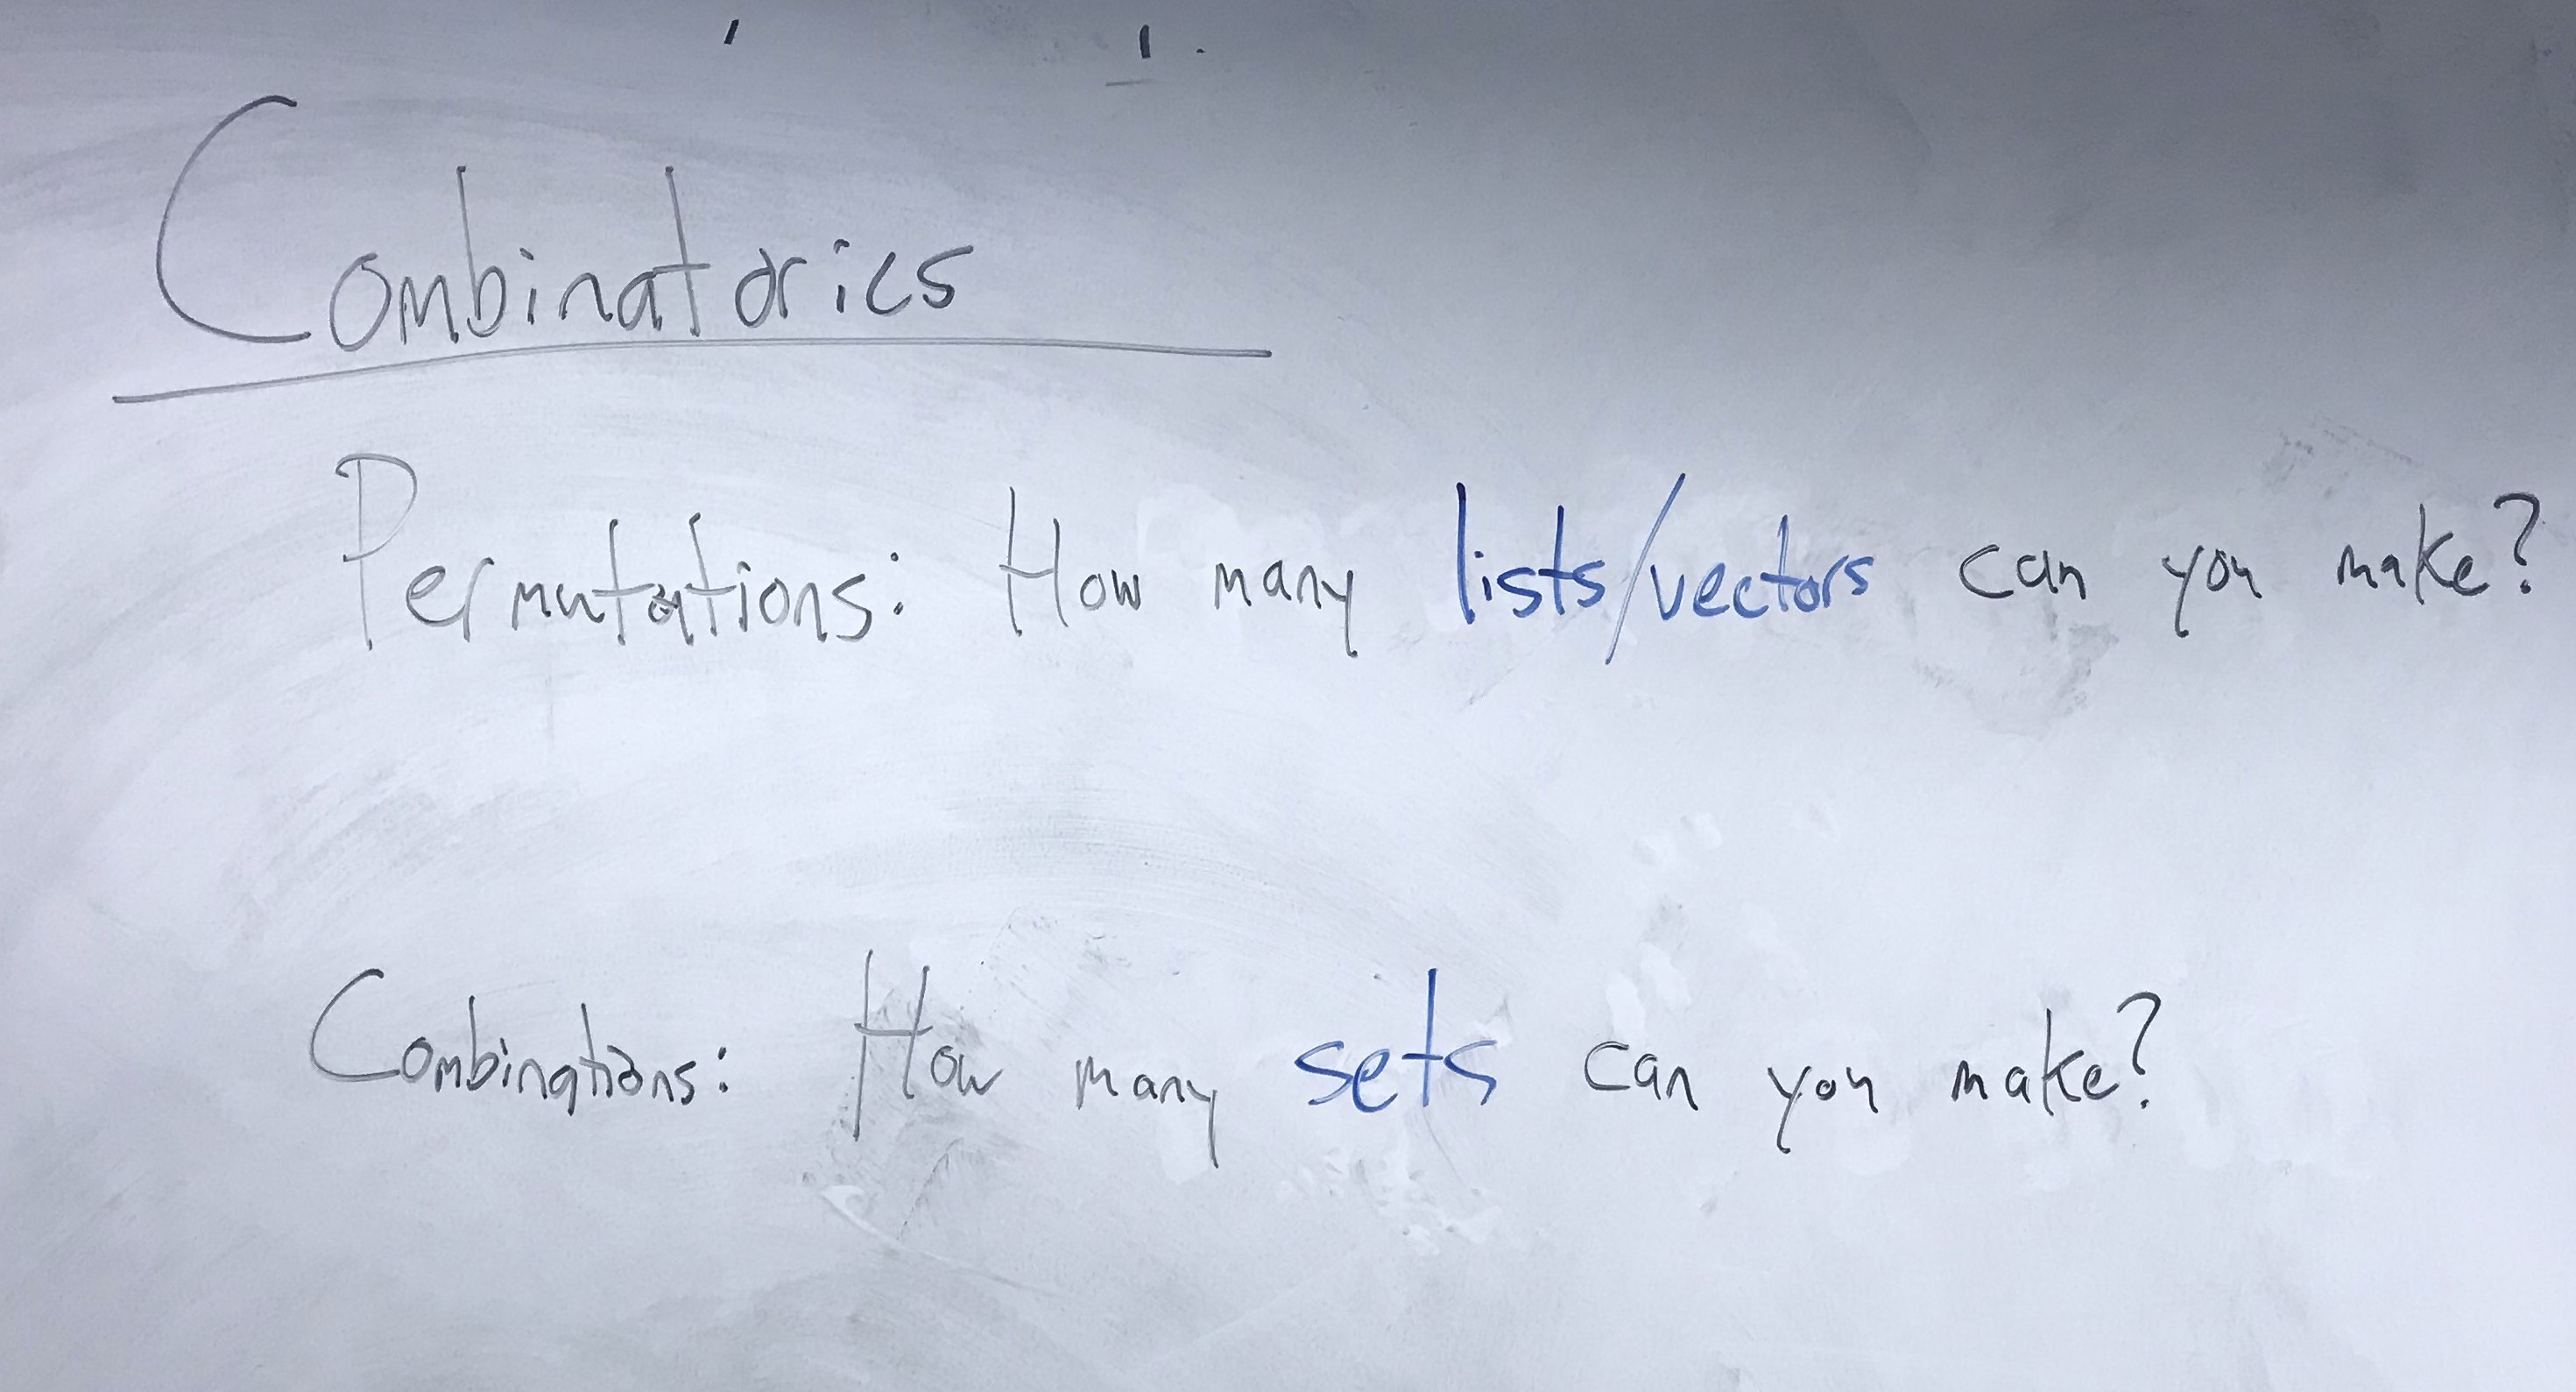 Combinatorics
Permutations: How many lists/vectors can you make?
Combinations: How many sets can you make?